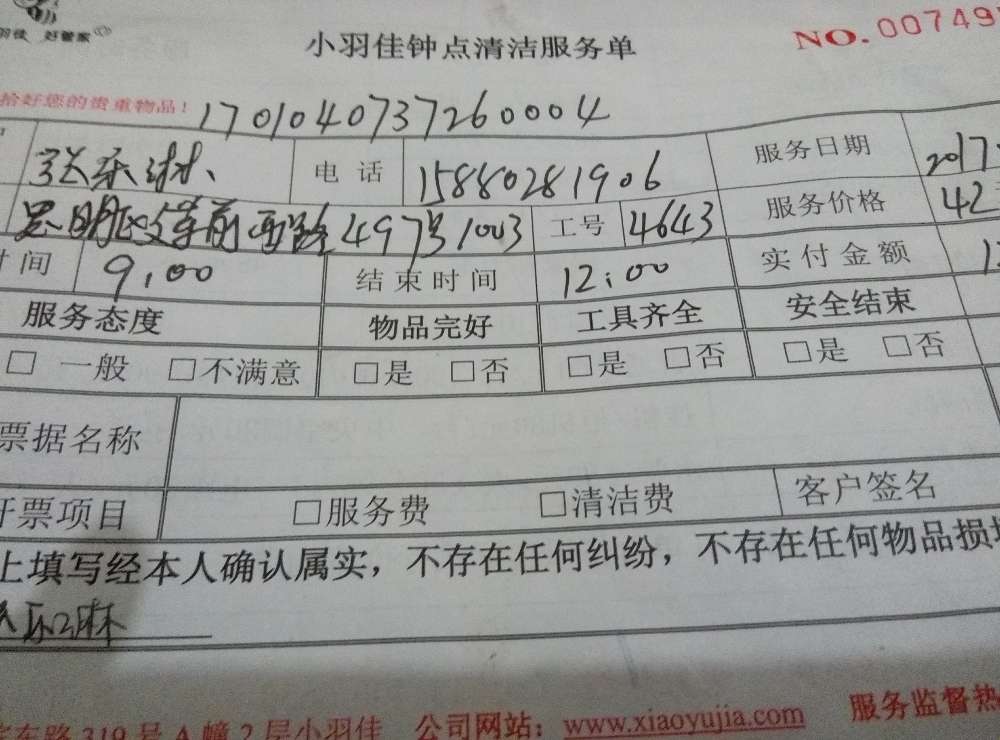 羽佳 好管家
小羽佳钟点清洁服务单
NO.00749
拾好您的贵重物品！
1701040737260004
电话 15880281906 服务日期 2017
思明区 前西路497号1003 工号 4643 服务价格 42
时间 9:00 结束时间 12:00 实付金额
服务态度 物品完好 工具齐全 安全结束
□ 一般 □不满意 □是 □否 □是 □否 □是 □否
票据名称
开票项目 □服务费 □清洁费 客户签名
上填写经本人确认属实，不存在任何纠纷，不存在任何物品损
东路319号A幢2层小羽佳 公司网站：www.xiaoyujia.com 服务监督热